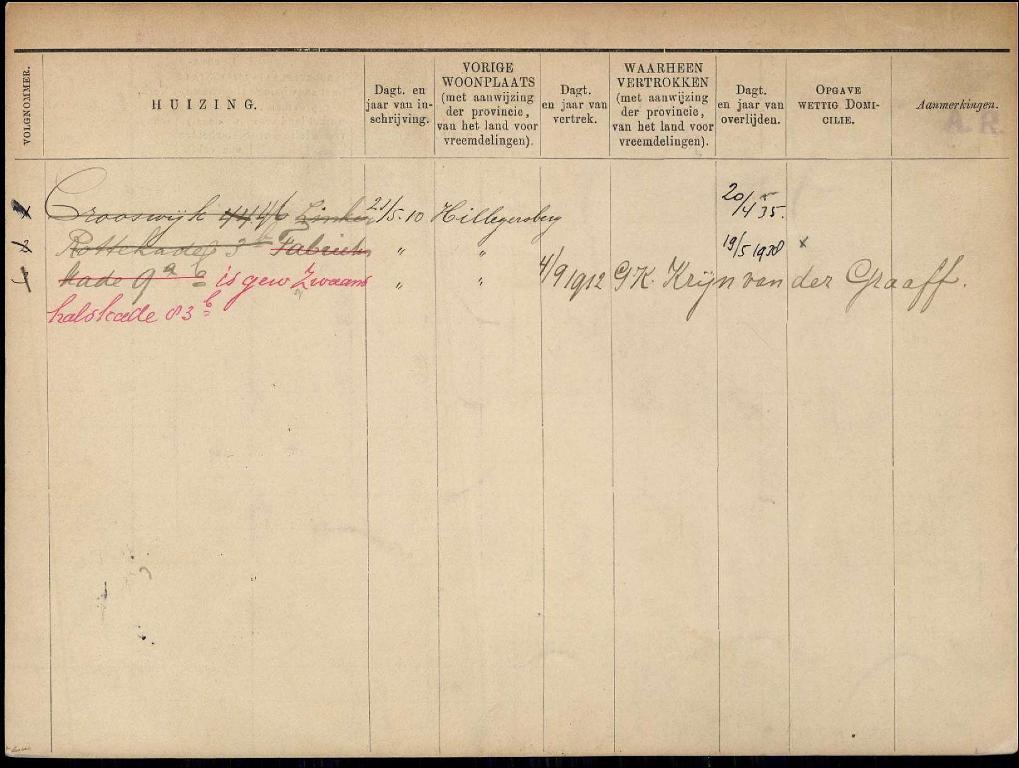 VOLGNOMMER.
HUIZING.
Dagt. en
jaar van in-
schrijving.
VORIGE
WOONPLAATS
(met aanwijzing
der provincie,
van het land voor
vreemdelingen).
Dagt.
en jaar van
vertrek.
WAARHEEN
VERTROKKEN
(met aanwijzing
der provincie,
van het land voor
vreemdelingen).
Dagt.
en jaar van
overlijden.
OPGAVE
WETTIG DOMI-
CILIE.
Aanmerkingen.
A. R.
Crooswijk 44 46 Linker 21/5-10 Hillegersberg 20/4 35.
Rottekade 3 Fabrieks " " 19/5 1938 x
kade 9a is gew Zwaans " " 4/9 1912 G.K. Krijn van der Graaff.
halskade 83b